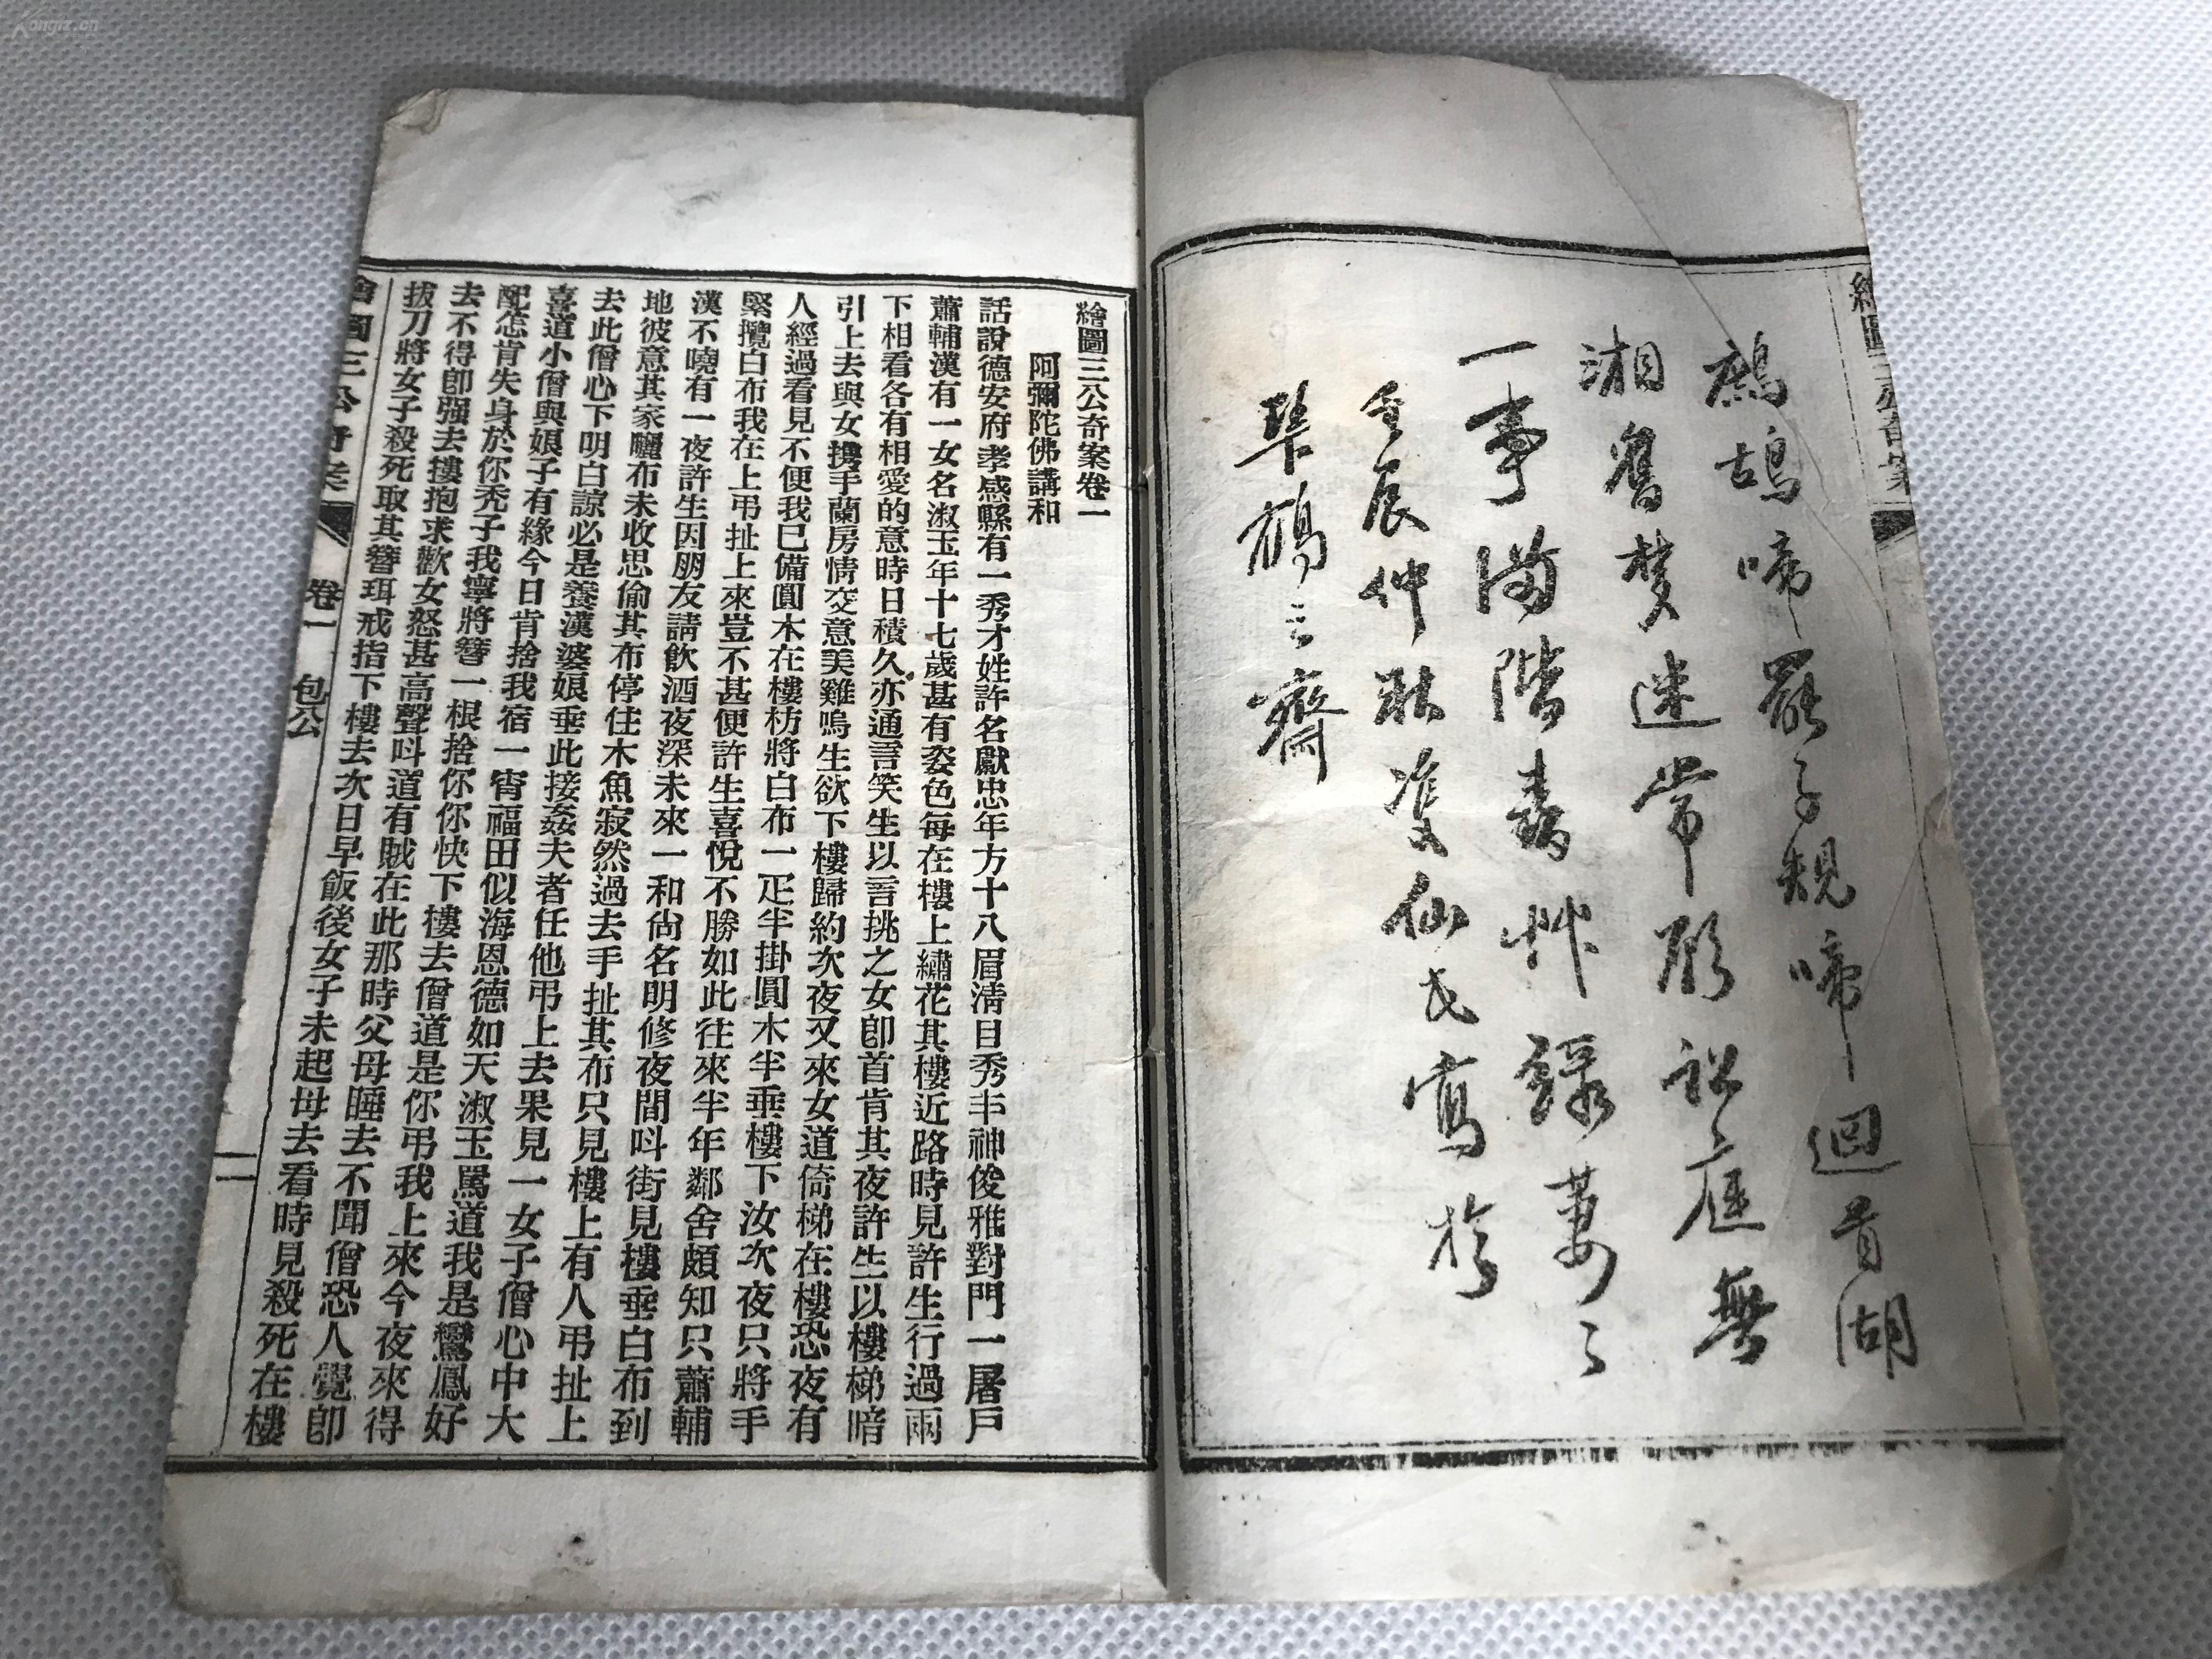 鷓鴣啼罷子規啼迴首湖
湘舊夢迷常願訟庭無
一事滿階春艸綠萋〻
壬辰仲秋雙仙氏寫於
琴鶴之齋
繪圖三公奇案卷一
阿彌陀佛講和
話說德安府孝感縣有一秀才姓許名獻忠年方十八眉清目秀丰神俊雅對門一屠戶
蕭輔漢有一女名淑玉年十七歲甚有姿色每在樓上繡花其樓近路時見許生行過兩
下相看各有相愛的意時日積久亦通言笑生以言挑之女卽首肯其夜許生以樓梯暗
引上去與女携手蘭房情交意美雞鳴生欲下樓歸約次夜又來女道倚梯在樓恐夜有
人經過看見不便我已備圓木在樓枋將白布一疋半掛圓木半垂樓下汝次夜只將手
緊攬白布我在上弔扯上來豈不甚便許生喜悅不勝如此往來半年鄰舍頗知只蕭輔
漢不曉有一夜許生因朋友請飲酒夜深未來一和尙名明修夜間呌街見樓垂白布到
地彼意其家曬布未收思偷其布停住木魚寂然過去手扯其布只見樓上有人弔扯上
去此僧心下明白諒必是養漢婆娘垂此接姦夫者任他弔上去果見一女子僧心中大
喜道小僧與娘子有緣今日肯捨我宿一宵福田似海恩德如天淑玉罵道我是鸞鳳好
配怎肯失身於你禿子我寧將簪一根捨你你快下樓去僧道是你弔我上來今夜來得
去不得卽强去摟抱求歡女怒甚高聲呌道有賊在此那時父母睡去不聞僧恐人覺卽
拔刀將女子殺死取其簪珥戒指下樓去次日早飯後女子未起母去看時見殺死在樓
繪圖三公奇案 卷一 包公 一